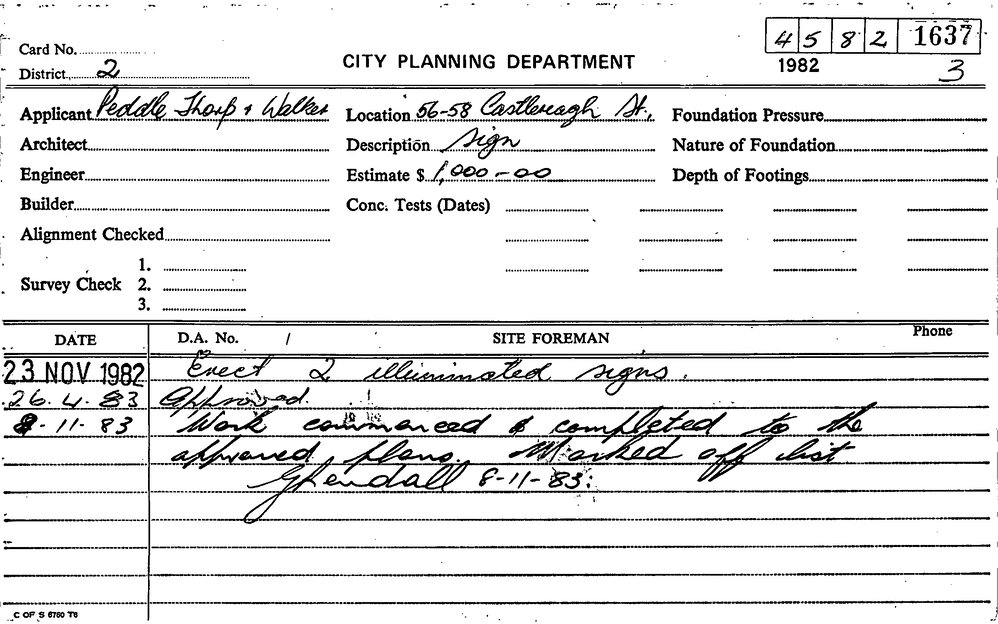 4 5 8 2 1637
Card No.
CITY PLANNING DEPARTMENT
1982
3
District 2
Applicant Peddle Thorp & Walker Location 56-58 Castlereagh St., Foundation Pressure
Architect Description Sign Nature of Foundation
Engineer Estimate $ 1,000-00 Depth of Footings
Builder Conc. Tests (Dates)
Alignment Checked
1.
Survey Check 2.
3.
DATE D.A. No. / SITE FOREMAN Phone
23 NOV 1982 Erect 2 illuminated signs.
26.4.83 Approved.
8-11-83 Work commenced & completed to the
approved plans. Marked off list
GKendall 8-11-83.
C OF S 6760 T6